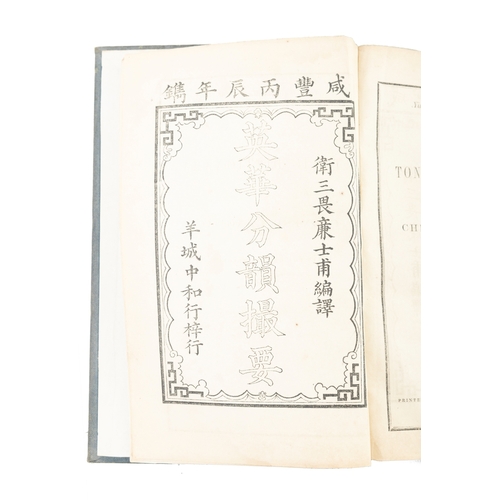 咸豐丙辰年鐫
衛三畏廉士甫編譯
英華分韻撮要
羊城中和行梓行
TON
CH
PRINT